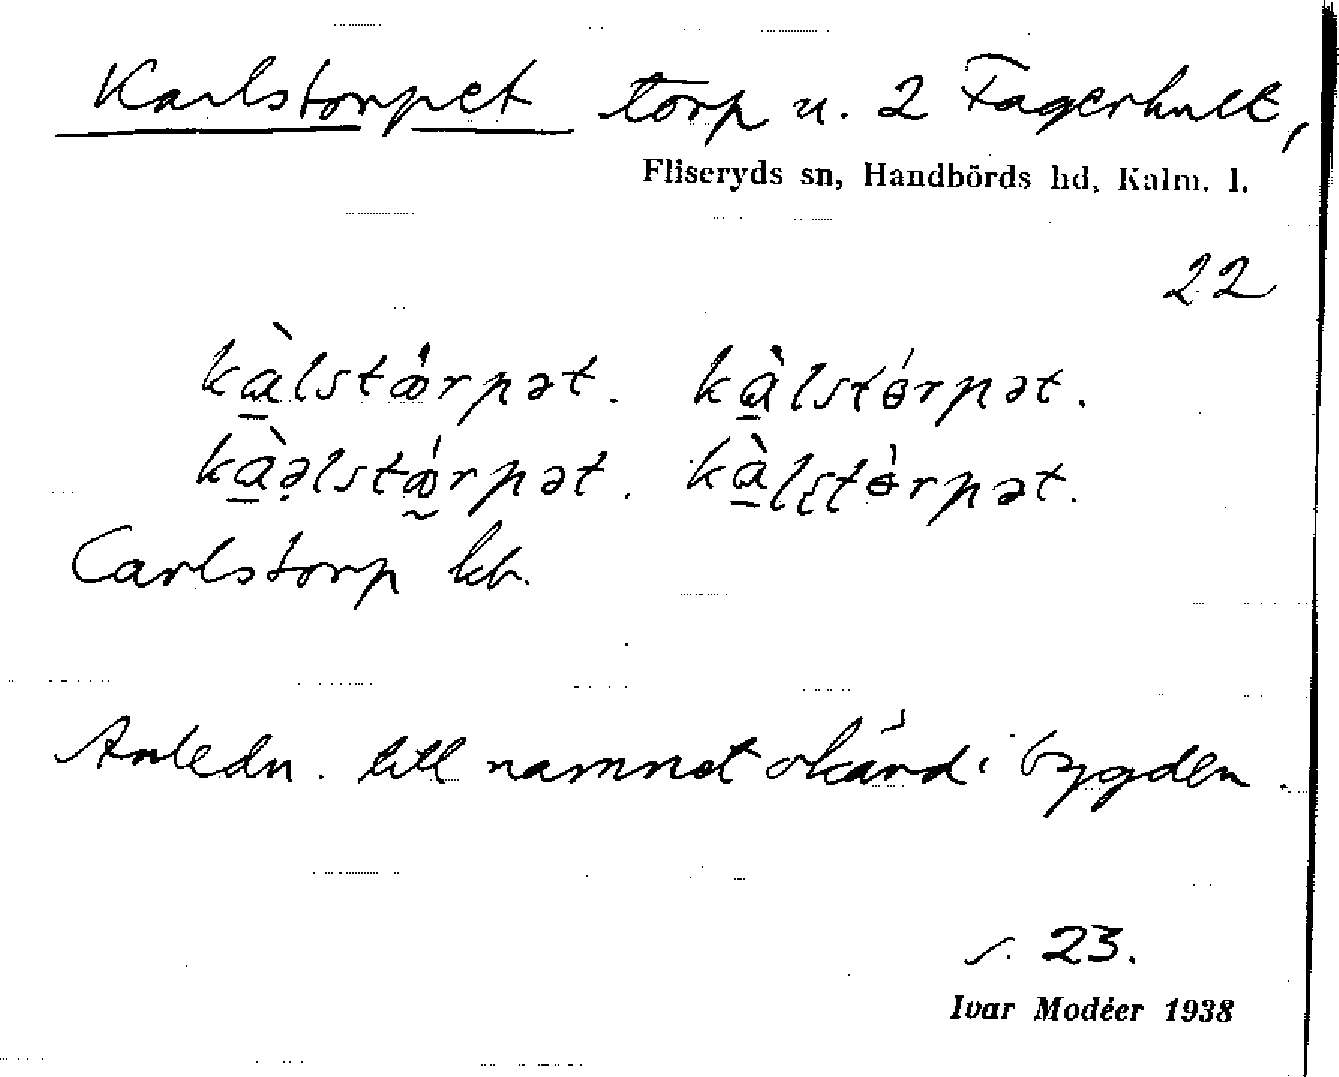 Karlstorpet torp u. 2 Fagerhult,
Fliseryds sn, Handbörds hd, Kalm. l.
22
kὰ̱lstꝏ́rpət. kὰ̱lstɵ́rpət.
kὰ̱ə̣lstꝏ̰́rpət. kὰ̱lstɵ́rpət.
Carlstorp kb.
Anledn. till namnet okänd i bygden.
s. 23.
Ivar Modéer 1938